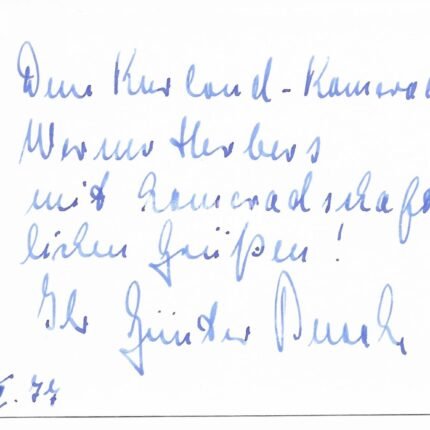 Dem Kurland-Kamerad
Werner Herbers
mit kameradschaft
lichen Grüßen!
Ihr Günter
I. 77